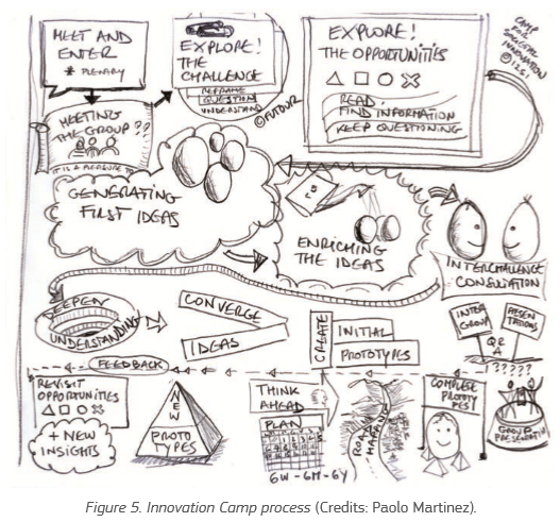 MEET AND
ENTER
* PLENARY
EXPLORE!
THE
CHALLENGE
REFRAME
QUESTION
UNDERSTAND
©FUTOUR
EXPLORE!
THE OPPORTUNITIES
READ
FIND INFORMATION
KEEP QUESTIONING
CAMP
FOR
SOCIETAL
INNOVATION
MEETING
THE GROUP??
IT IS A PLEASURE TO
GENERATING
FIRST IDEAS
ENRICHING
THE IDEAS
INTERCHALLENGE
CONSULTATION
DEEPEN
UNDERSTANDING
CONVERGE
IDEAS
CREATE
INITIAL
PROTOTYPES
INTER
GROUP
PRESEN
TATIONS
Q&A
!?????
FEEDBACK
REVISIT
OPPORTUNITIES
+ NEW
INSIGHTS
NEW
PROTO
TYPES
THINK
AHEAD
PLAN
6W-6M-6Y
ROAD
MAPPING
COMPLETE
PROTOTY
PES!
GROUP
PRESENTATION
Figure 5. Innovation Camp process (Credits: Paolo Martinez).